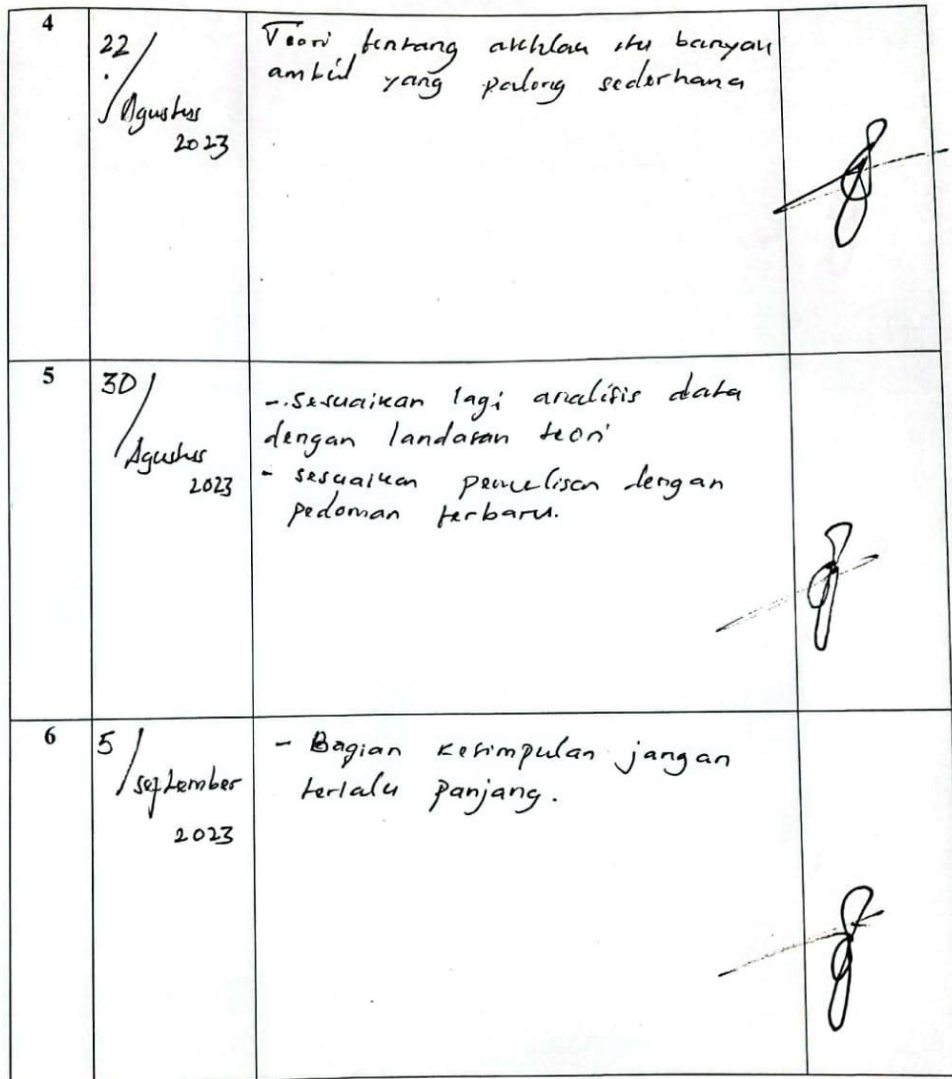 4
22/
Agustus
2023
Teori tentang akhlak itu banyak
ambil yang paling sederhana
5
30/
Agustus
2023
- Sesuaikan lagi analisis data
dengan landasan teori
- sesuaikan penulisan dengan
pedoman terbaru.
6
5/
september
2023
- Bagian kesimpulan jangan
terlalu panjang.